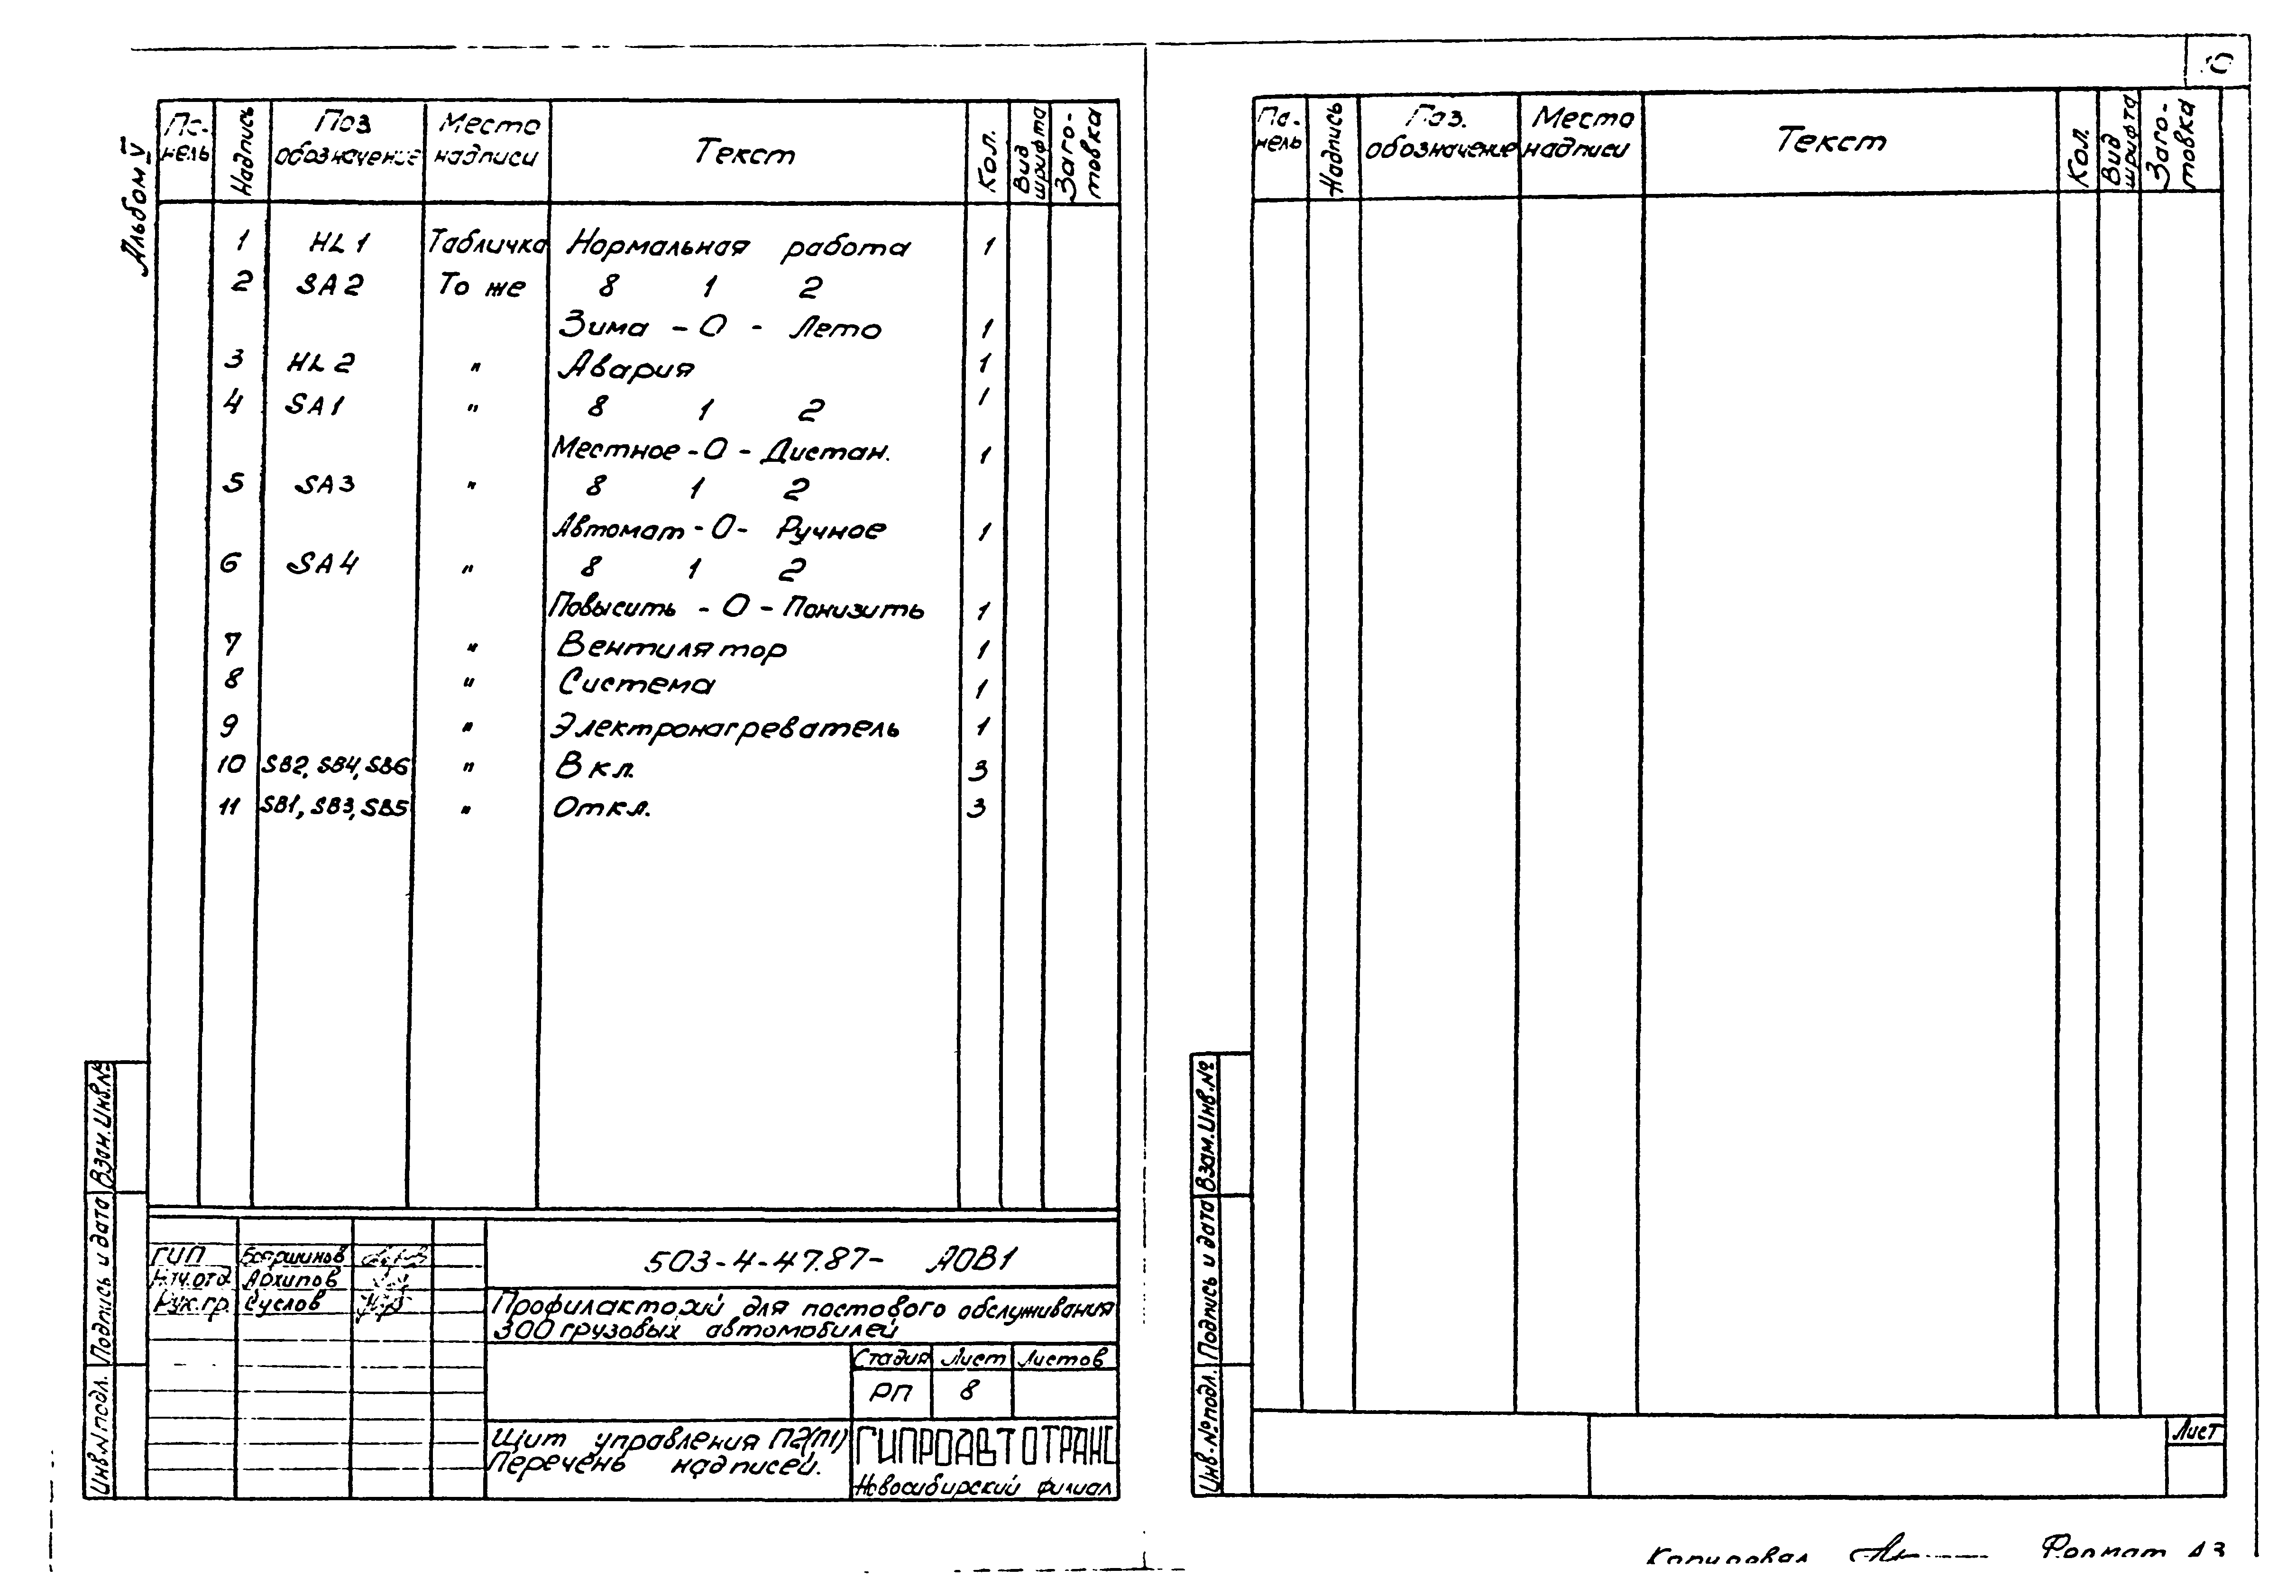 10
Альбом V
Па-
нель
Надпись
Поз
обозначение
Место
надписи
Текст
Кол.
Вид
шрифта
Заго-
товка
1 HL1 Табличка Нормальная работа 1
2 SA2 То же 8 1 2
Зима - 0 - Лето 1
3 HL2 " Авария 1
4 SA1 " 8 1 2 1
Местное - 0 - Дистан. 1
5 SA3 " 8 1 2
Автомат - 0 - Ручное 1
6 SA4 " 8 1 2
Повысить - 0 - Понизить 1
7 " Вентилятор 1
8 " Система 1
9 " Электронагреватель 1
10 SB2, SB4, SB6 " Вкл. 3
11 SB1, SB3, SB5 " Откл. 3
Взам. Инв. №
Подпись и дата
Инв. N подл.
ГИП Бояршинов
Нач.отд. Архипов
Рук.гр. Суслов
503-4-47.87- АОВ1
Профилакторий для постового обслуживания
300 грузовых автомобилей
Стадия Лист Листов
РП 8
Щит управления П2(П1)
Перечень надписей.
ГИПРОАВТОТРАНС
Новосибирский филиал
Па-
нель
Надпись
Поз.
обозначение
Место
надписи
Текст
Кол.
Вид
шрифта
Заго-
товка
Взам. Инв. №
Подпись и дата
Инв. № подл.
Лист
Копировал Формат А3